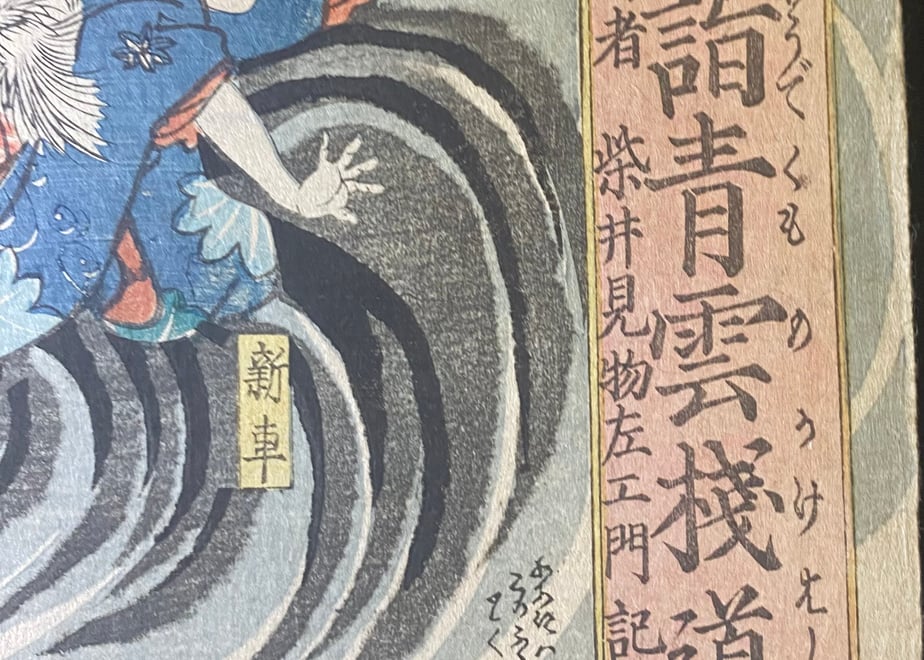 うで くものかけはし
詣青雲棧道
者 柴井見物左エ門 記
新車